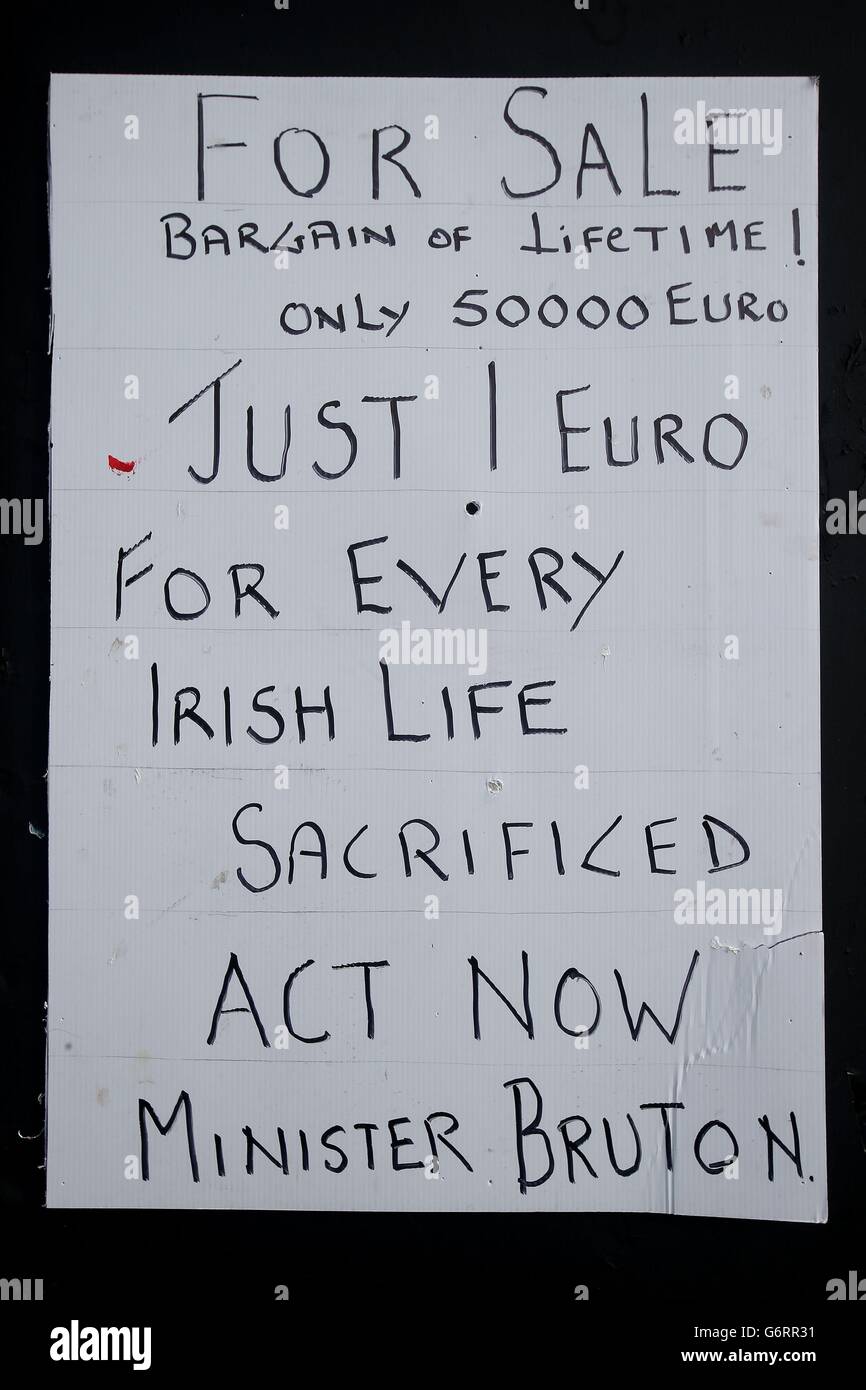 FOR SALE
BARGAIN OF LIFETIME!
ONLY 50000 EURO
JUST 1 EURO
FOR EVERY
IRISH LIFE
SACRIFICED
ACT NOW
MINISTER BRUTON.
a
alamy
a
alamy
a
alamy
a
alamy
alamy
Image ID: G6RR31
www.alamy.com